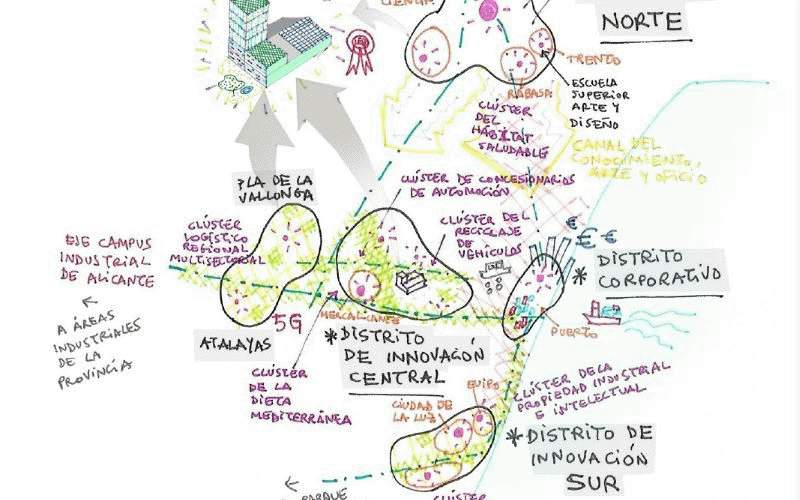 NORTE
TRENTO
RABASA
ESCUELA
SUPERIOR
ARTE Y
DISEÑO
CLÚSTER
DEL
HÁBITAT
SALUDABLE
CANAL DEL
CONOCIMIENTO,
ARTE Y OFICIO
PLA DE LA
VALLONGA
CLÚSTER DE CONCESIONARIOS
DE AUTOMOCIÓN
CLÚSTER DEL
RECICLAJE
DE
VEHÍCULOS
CLÚSTER
LOGÍSTICO
REGIONAL
MULTISECTORIAL
EJE CAMPUS
INDUSTRIAL
DE ALICANTE
A ÁREAS
INDUSTRIALES
DE LA
PROVINCIA
€ € €
* DISTRITO
CORPORATIVO
ATALAYAS
5G
MERCALICANTE
PUERTO
* DISTRITO
DE INNOVACIÓN
CENTRAL
CLÚSTER
DE LA
DIETA
MEDITERRÁNEA
CLÚSTER DE LA
PROPIEDAD INDUSTRIAL
E INTELECTUAL
EUIPO
CIUDAD DE
LA LUZ
* DISTRITO DE
INNOVACIÓN
SUR
PARQUE
CLÚSTER